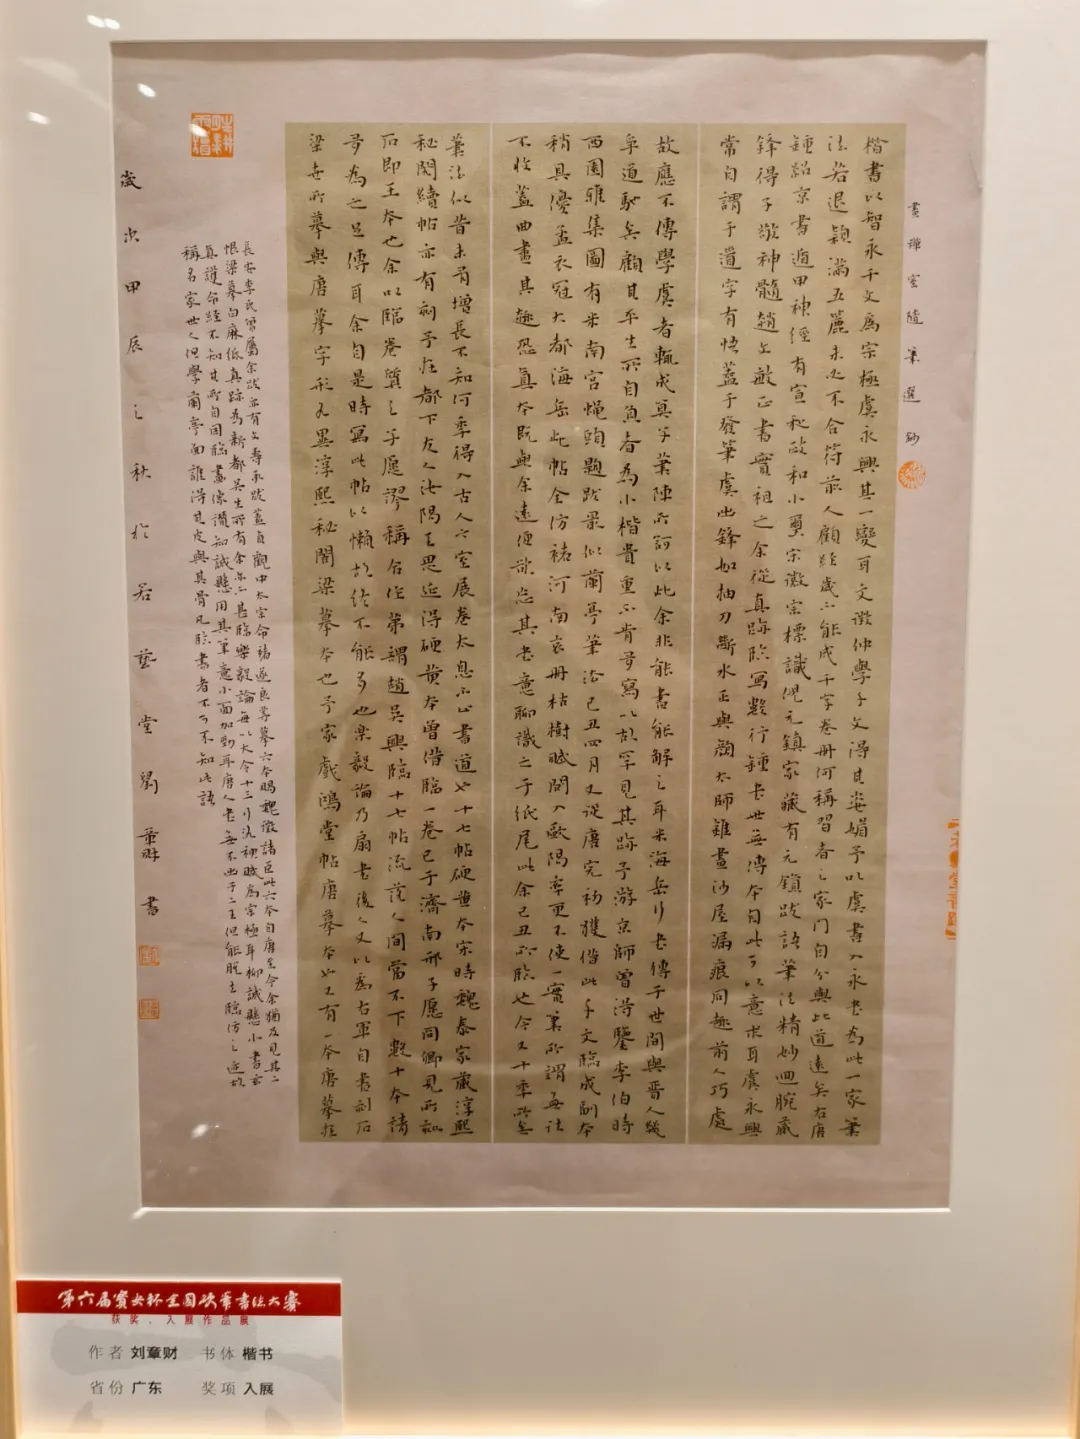 畫禪室隨筆選鈔
楷書以智永千文爲宗極虞永興其一變耳文徵仲學千文得其姿媚予以虞書入永書爲此一家筆
法若退穎滿五簏未必不合符前人顧經歲不能成千字卷冊何稱習者之家門自分與此道遠矣右唐
鍾紹京書遁甲神經有宣和政和小璽宋徽宗標識倪元鎮家藏有元鎮跋語筆法精妙迴腕藏
鋒得子敬神髓趙文敏正書實祖之余從真跡臨寫數行鍾書世無傳本自此可以意求耳虞永興
常自謂于道字有悟蓋于發筆處出鋒如抽刀斷水正與顏太師錐畫沙屋漏痕同趣前人巧處
故應不傳學虞者輒成算子筆陣所訶以此余非能書能解之耳米海岳行書傳于世間與晉人
年通馳矣顧其平生所自負者爲小楷貴重不肯多寫以故罕見其跡予游京師曾得鑒李伯時
西園雅集圖有米南宮蠅頭題跋最似蘭亭筆法己丑四月又從唐完初獲借此千文臨成副本
稍具優孟衣冠大都海岳此帖全仿褚河南哀冊枯樹賦間入歐陽率更不使一實筆所謂無往
不收蓋曲盡其趣恐真本既與余遠便欲忘其書意聊識之于紙尾此余己丑所臨也今又十年所矣
筆法似昔未有增長不知何年得入古人之室展卷太息不止書道也十七帖硬黃本宋時魏泰家藏淳熙
秘閣續帖亦有刻予在都下友人汝陽王思延得硬黃本曾借臨一卷已于濟南邢子愿同卿見所知
石即王本也余以臨卷質之子愿謬稱合作弟謂趙吳興臨十七帖流落人間當不下數十本請
多爲之足傳耳余自是時寫此帖以懶故終不能多也樂毅論乃扇書後人又以爲右軍自書刻石
梁世所摹與唐摹字形各異淳熙秘閣梁摹本也予家戲鴻堂帖唐摹本也又有一本唐摹在
長安李氏曾屬余跋亦有文壽承跋蓋貞觀中太宗命褚遂良等摹六本賜魏徵諸臣此六本自唐至今余猶及見其二
恨梁摹白麻紙真跡爲新都吳生所有余亦不甚臨樂毅論每以大令十三行洛神賦爲宗極耳柳誠懸小書玄
真護命經不知其所自因臨畫像讚知誠懸用其筆意小面加勁耳唐人書無不出于二王但能脫去臨仿之迹故
稱名家世人但學蘭亭面誰得其皮與其骨凡臨書者不可不知此語
歲次甲辰之秋於若藝堂劉章財書
第六届宝安杯全国硬笔书法大赛
获奖、入展作品展
作者 刘章财 书体 楷书
省份 广东 奖项 入展